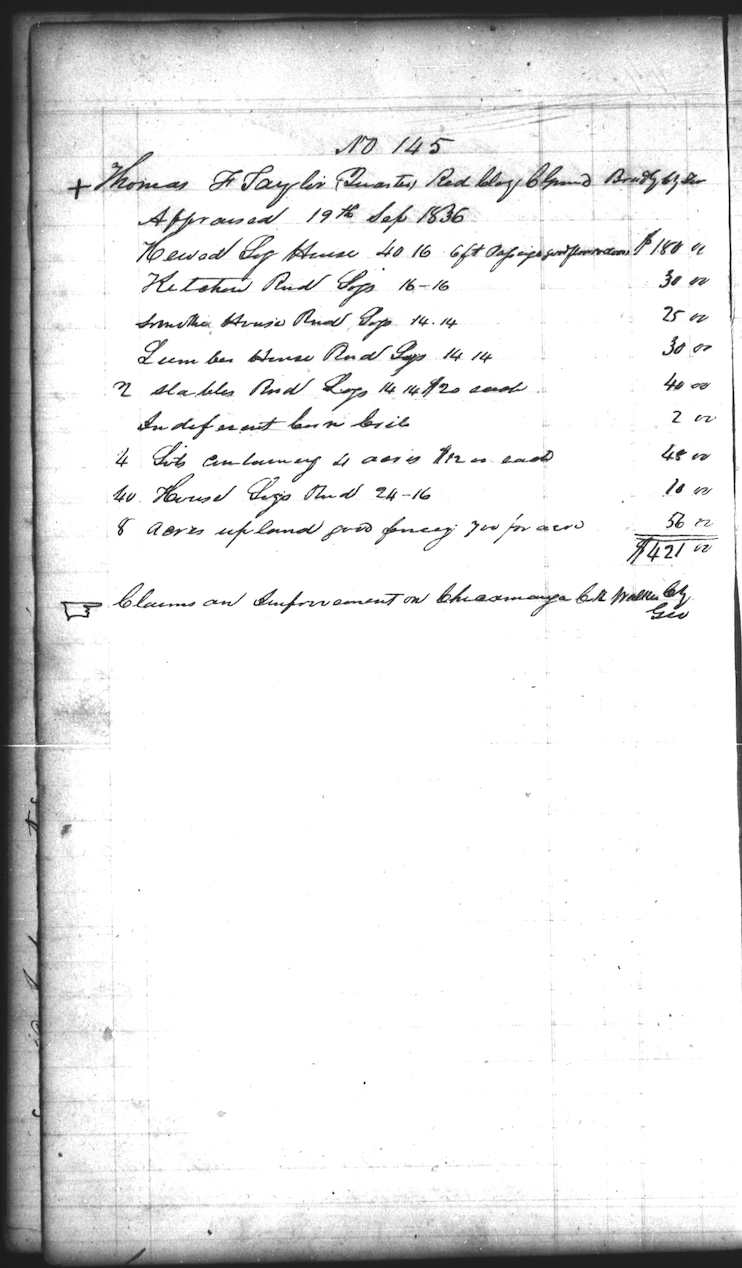 No 145
+ Thomas F Taylor (Quarter) Red Clay C Ground Bradly Cy Ten
Appraised 19th Sep 1836
Hewed Log House 40 16 6ft Passage good floors $180 00
Kitchen Rnd Logs 16-16 30 00
Smoke House Rnd Logs 14.14 25 00
Lumber House Rnd Logs 14 14 30 00
2 stables Rnd Logs 14 14 $20 each 40 00
Indiferent Corn Crib 2 00
4 Lots containing 4 acres $12 00 each 48 00
40 House Logs Rnd 24-16 10 00
8 acres upland good fencing 700 pr acre 56 00
$421 00
Claims an Improvement on Chicamauga Ck Walker Cty
Geo